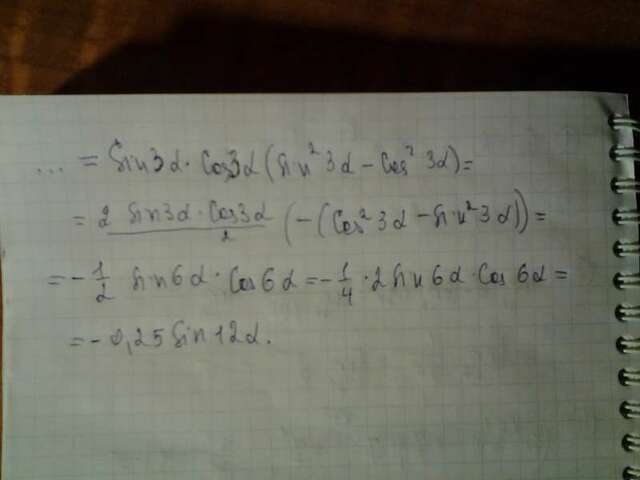 ... = Sin3α · Cos3α (Sin² 3α - Cos² 3α) =
= 2 Sin3α · Cos3α / 2 (-(Cos² 3α - Sin² 3α)) =
= - 1/2 Sin6α · Cos6α = - 1/4 · 2 Sin6α · Cos 6α =
= - 0,25 Sin12α.